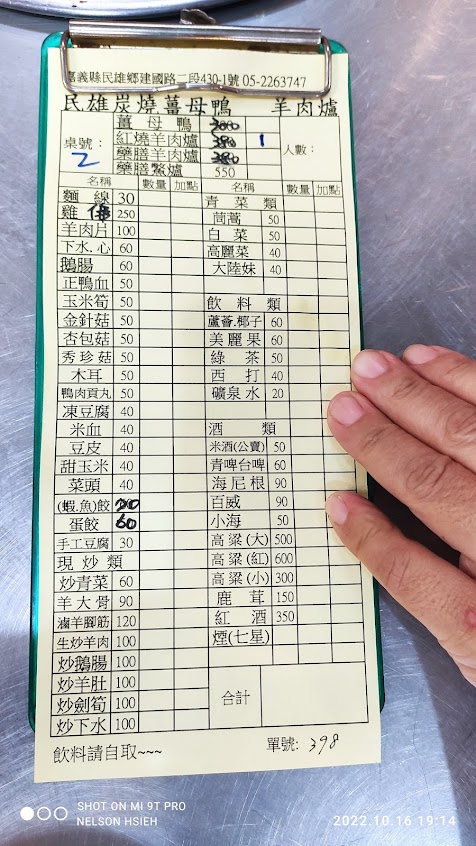 嘉義縣民雄鄉建國路二段430-1號 05-2263747
民雄炭燒薑母鴨 羊肉爐
桌號: 2
薑母鴨 300
紅燒羊肉爐 1
藥膳羊肉爐
藥膳鱉爐 550
人數:
名稱 數量 加點 名稱 數量 加點
麵線 30 青菜類
雞 250 茼蒿 50
羊肉片 100 白菜 50
下水.心 60 高麗菜 40
鵝腸 60 大陸妹 40
正鴨血 50
玉米筍 50 飲料類
金針菇 50 蘆薈.椰子 60
杏包菇 50 美麗果 60
秀珍菇 50 綠茶 50
木耳 50 西打 40
鴨肉貢丸 50 礦泉水 20
凍豆腐 40
米血 40 酒類
豆皮 40 米酒(公賣) 50
甜玉米 40 青啤台啤 60
菜頭 40 海尼根 90
(蝦.魚)餃 百威 90
蛋餃 60 小海 50
手工豆腐 30 高粱(大) 500
現炒類 高粱(紅) 600
炒青菜 60 高粱(小) 300
羊大骨 90 鹿茸 150
滷羊腳筋 120 紅酒 350
生炒羊肉 100 煙(七星)
炒鵝腸 100
炒羊肚 100 合計
炒劍筍 100
炒下水 100
飲料請自取~~~ 單號: 398
SHOT ON MI 9T PRO
NELSON HSIEH
2022.10.16 19:14